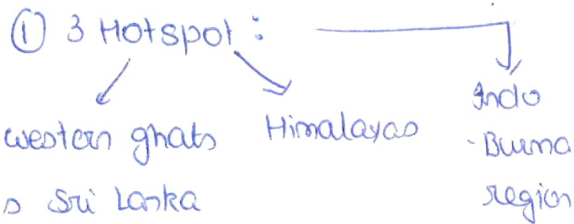 ① 3 Hotspot :
western ghats
Sri Lanka
Himalayas
Indo
-Burma
region